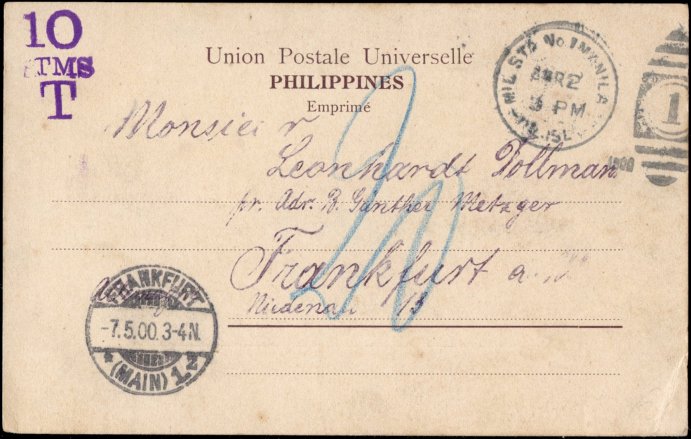 10
CTMS
T
Union Postale Universelle
PHILIPPINES
Emprimé
MIL. STA No. 1 MANILA
2
3 PM
PHIL. ISL.
1
1900
Monsieur
Leonhardt Dollmann
pr. Adr. B. Günther Metzger
Frankfurt a. M.
Niedenau 15
20
FRANKFURT
-7.5.00. 3-4N.
* (MAIN) 1.z